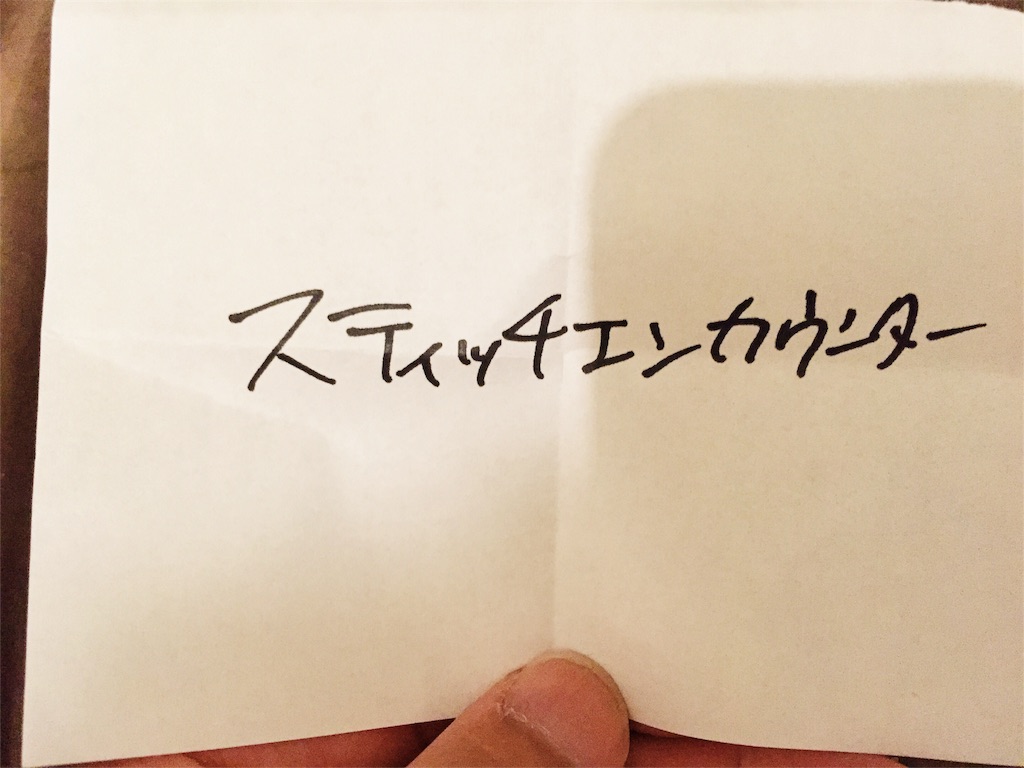 スティッチエンカウンター